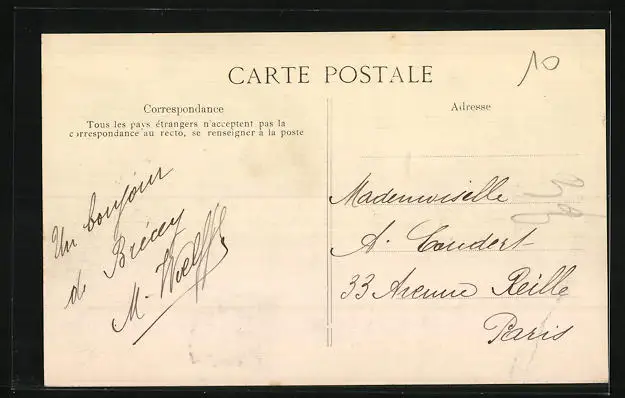 10
CARTE POSTALE
Correspondance
Tous les pays étrangers n'acceptent pas la
correspondance au recto, se renseigner à la poste
Adresse
Un bonjour
de Brécey
M. Wolff
Mademoiselle
A. Coudert
33 Avenue Reille
Paris